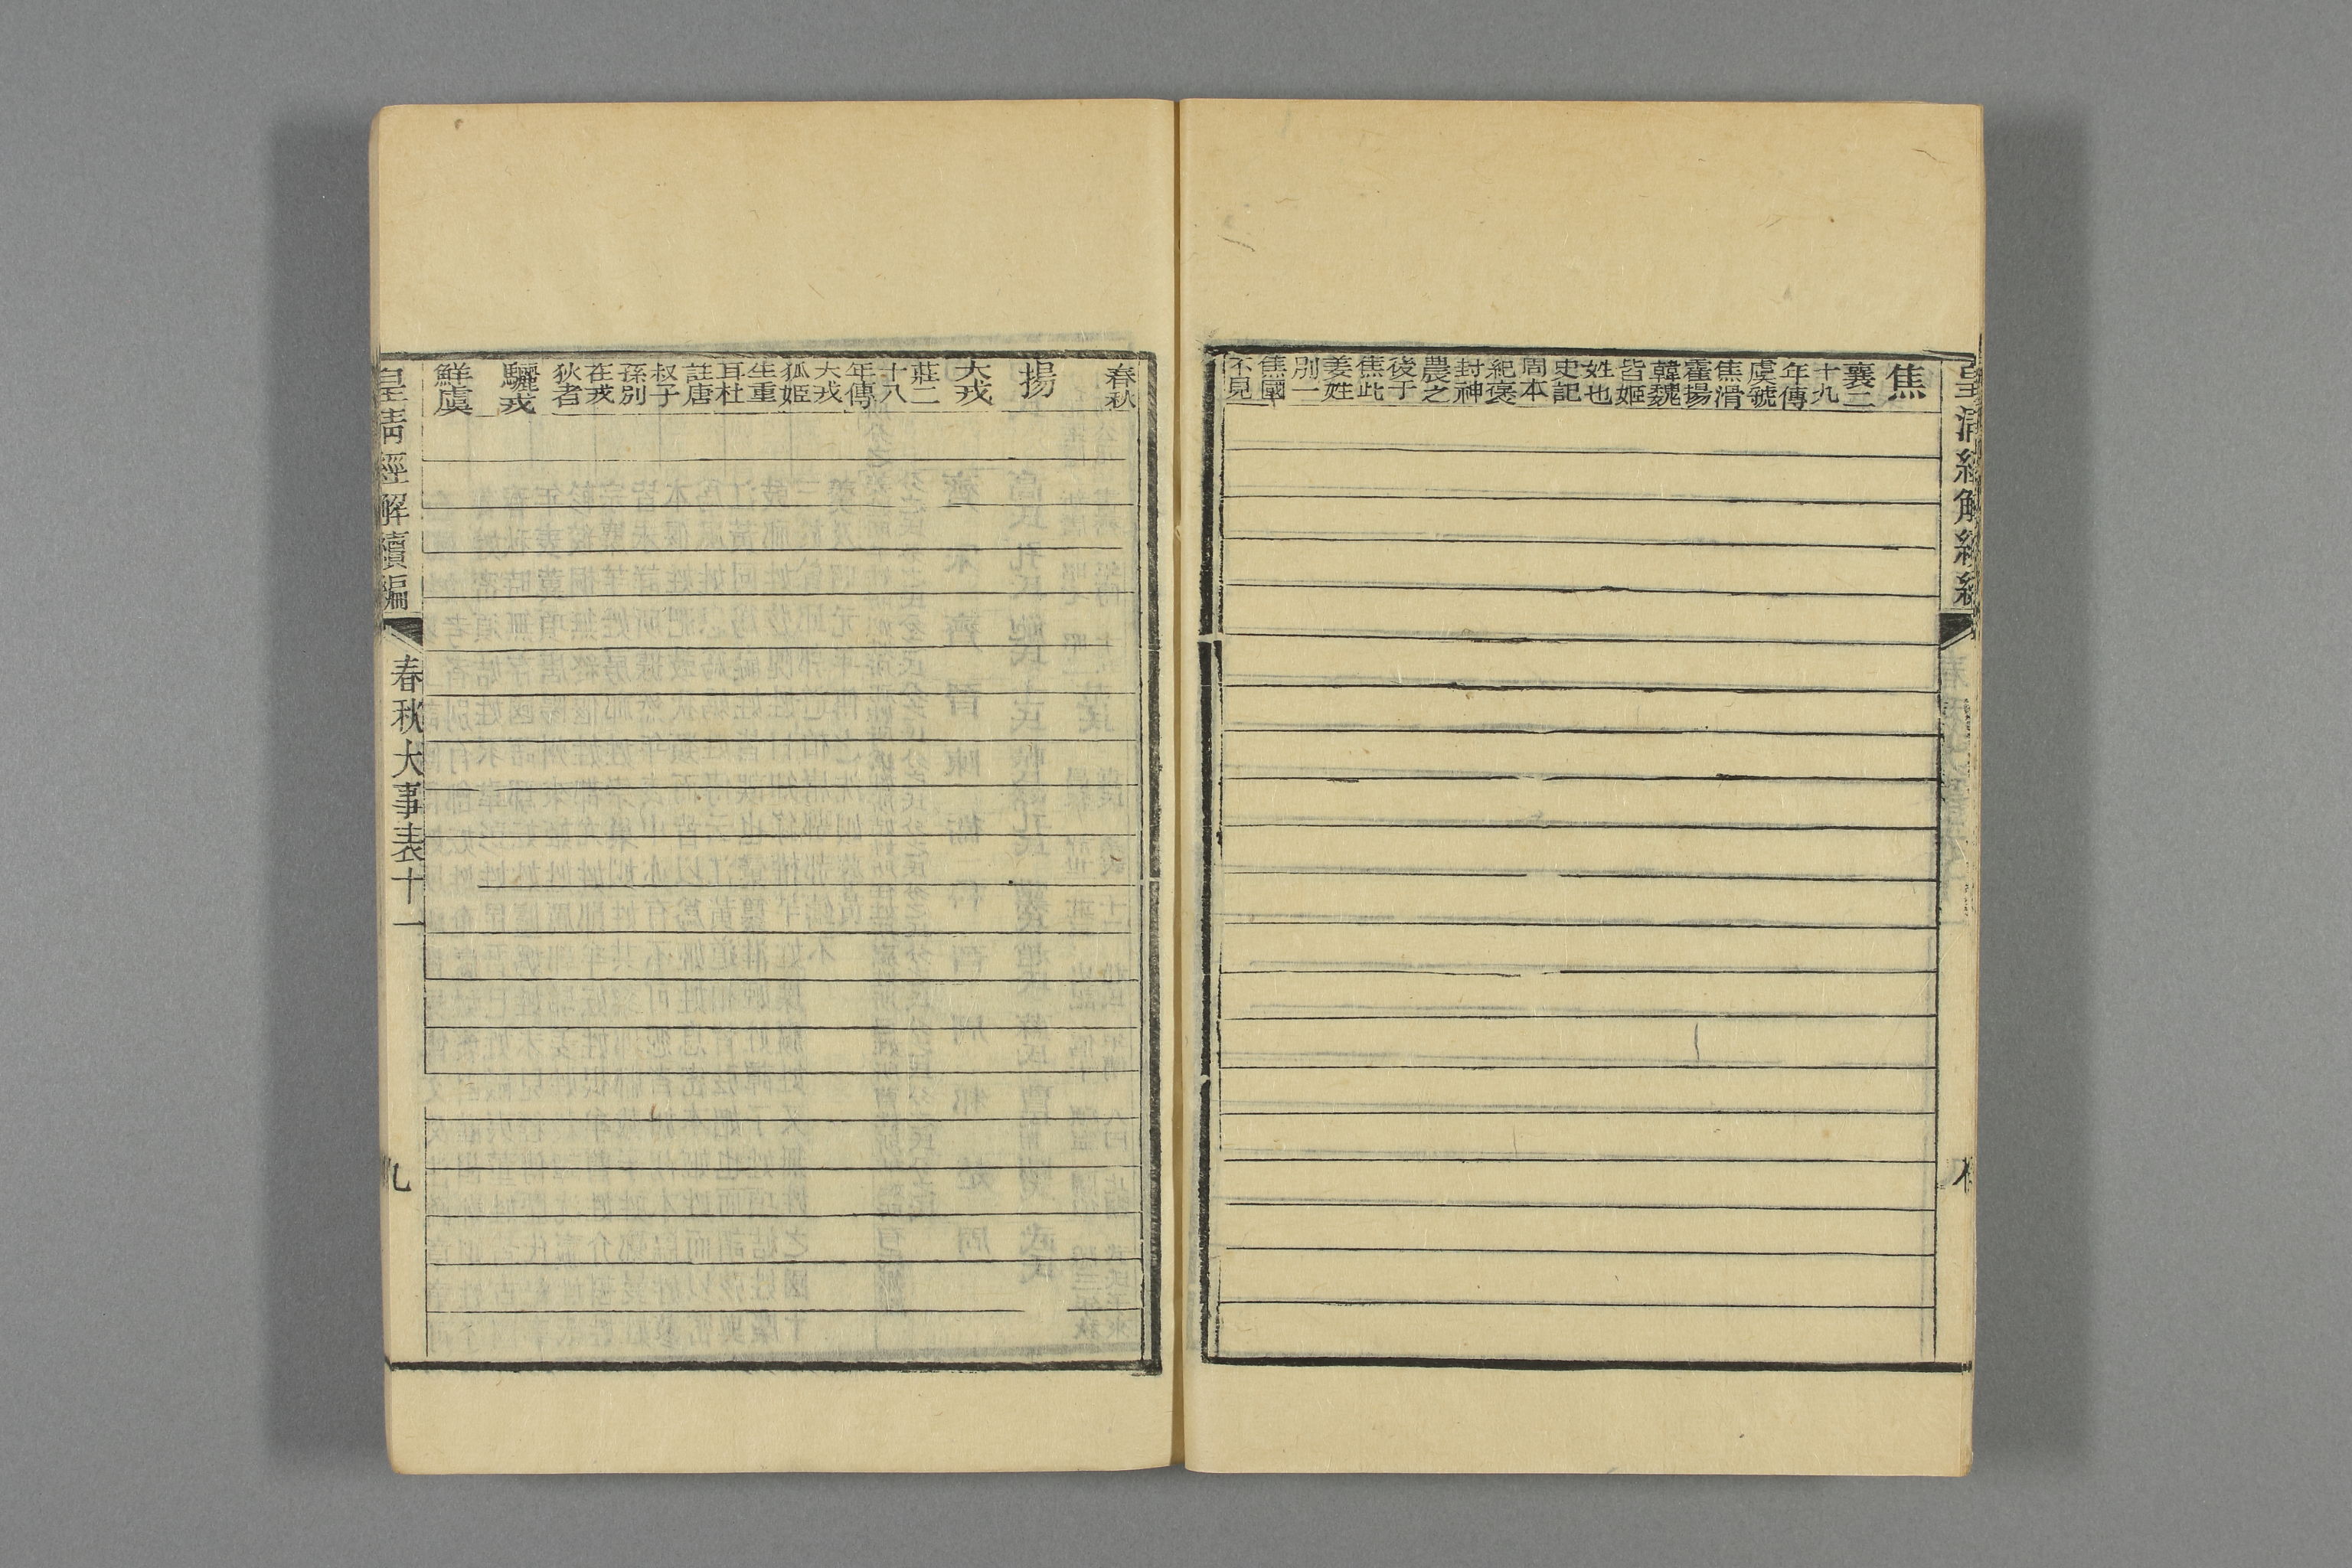 皇清經解續編
焦
襄二
十九
年傳
虞虢
焦滑
霍揚
韓魏
皆姬
姓也
史記
周本
紀褒
封神
農之
後于
焦此
姜姓
別一
焦國
不見
春秋
揚
大戎
莊二
十八
年傳
大戎
狐姬
生重
耳杜
註唐
叔子
孫別
在戎
狄者
驪戎
鮮虞
皇清經解續編
春秋大事表十一
九